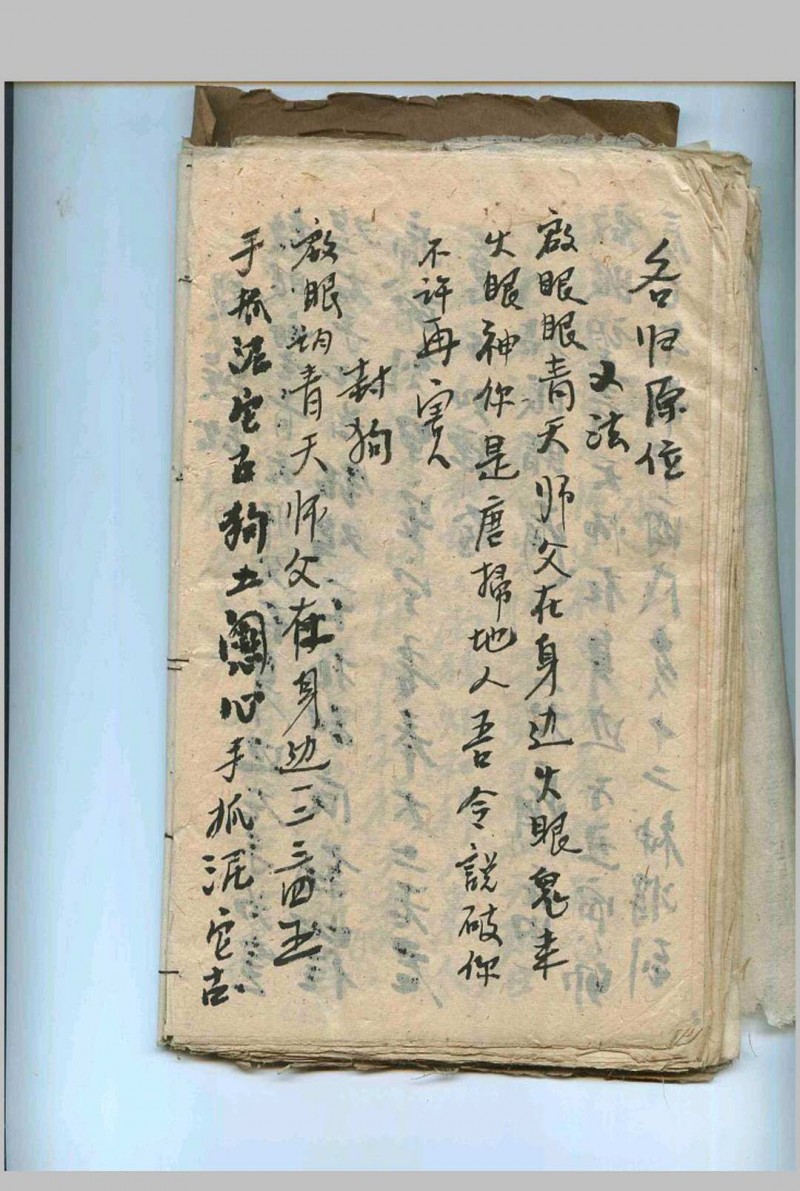 各归原位
又法
啟眼眼青天师父在身边火眼鬼来
火眼神你是唐掃地人吾今說破你
不許再害人
封狗
啟眼朝青天师父在身边三三四五
手抓泥它古狗土心手抓泥它古